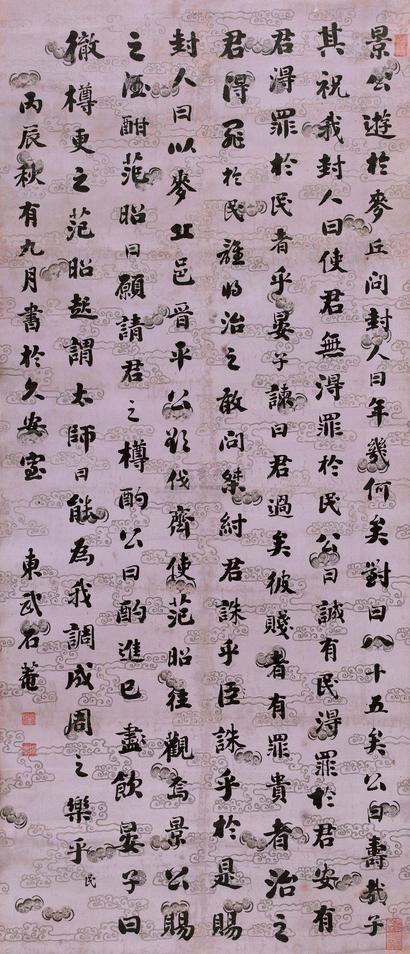 景公遊於麥丘問封人曰年幾何矣對曰八十五矣公曰壽哉子
其祝我封人曰使君無得罪於民公曰誠有民得罪於君安有
君得罪於民者乎晏子諫曰君過矣彼賤者有罪貴者治之
君得罪於民誰將治之敢問桀紂君誅乎臣誅乎於是賜
封人曰以麥丘邑晉平公欲伐齊使范昭往觀焉景公賜
之酒酣范昭曰願請君之樽酌公曰酌進已盡飲晏子曰
徹樽更之范昭起謂太師曰能為我調成周之樂乎民
丙辰秋有九月書於久安室 東武石菴